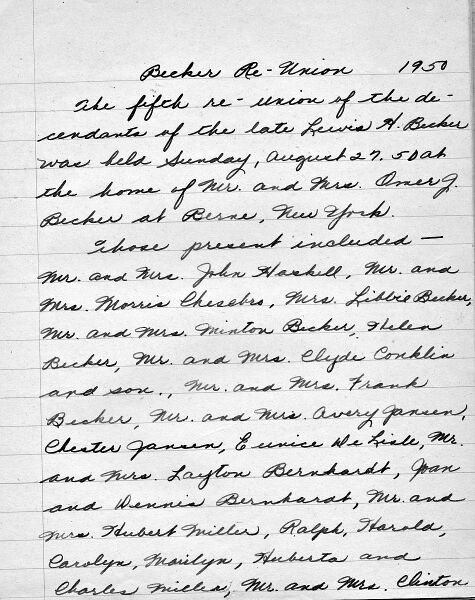 Becker Re-Union 1950
The fifth re-union of the de-
cendants of the late Lewis H. Becker
was held Sunday, August 27, 50 at
the home of Mr. and Mrs. Omer J.
Becker at Berne, New York.
Those present included —
Mr. and Mrs. John Haskell, Mr. and
Mrs. Morris Chesebro, Mrs. Libbie Becker,
Mr. and Mrs. Minton Becker, Helen
Becker, Mr. and Mrs. Clyde Conklin
and son., Mr. and Mrs. Frank
Becker, Mr. and Mrs. Avery Jansen,
Chester Jansen, Eunice DeLisle, Mr.
and Mrs. Layton Bernhardt, Joan
and Dennis Bernhardt, Mr. and
Mrs. Hubert Miller, Ralph, Harold,
Carolyn, Marilyn, Huberta and
Charles Miller, Mr. and Mrs. Clinton